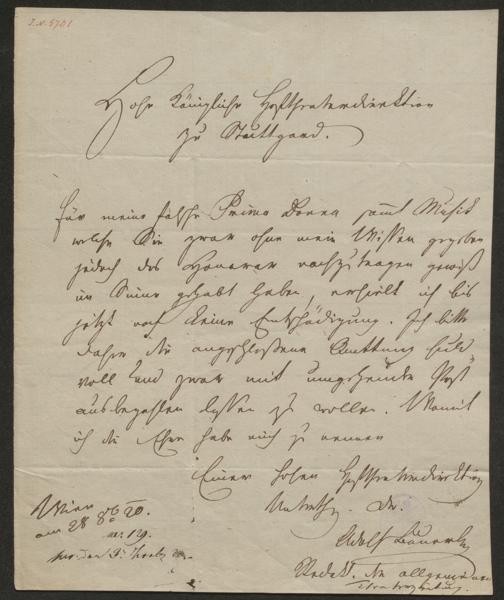 I.N. 5701
Hohe Königliche Hoftheaterdirektion
zu Stuttgard.
Für meine falsche Prima Donna sammt Musik
welche Sie zwar ohne mein Wissen gegeben
jedoch das Honorar nachzutragen gewiß
im Sinne gehabt haben, erhielt ich bis
jetzt noch keine Entschädigung. Ich bitte
daher die angeschlossene Quittung
voll und zwar mit umgehender Post
ausbezahlen lassen zu wollen. Womit
ich die Ehre habe mich zu nennen
Einer hohen Hoftheaterdirektion
Wien
am 28
Adolf Bäuerle
Redakt. der allgemeinen
Theaterzeitung.